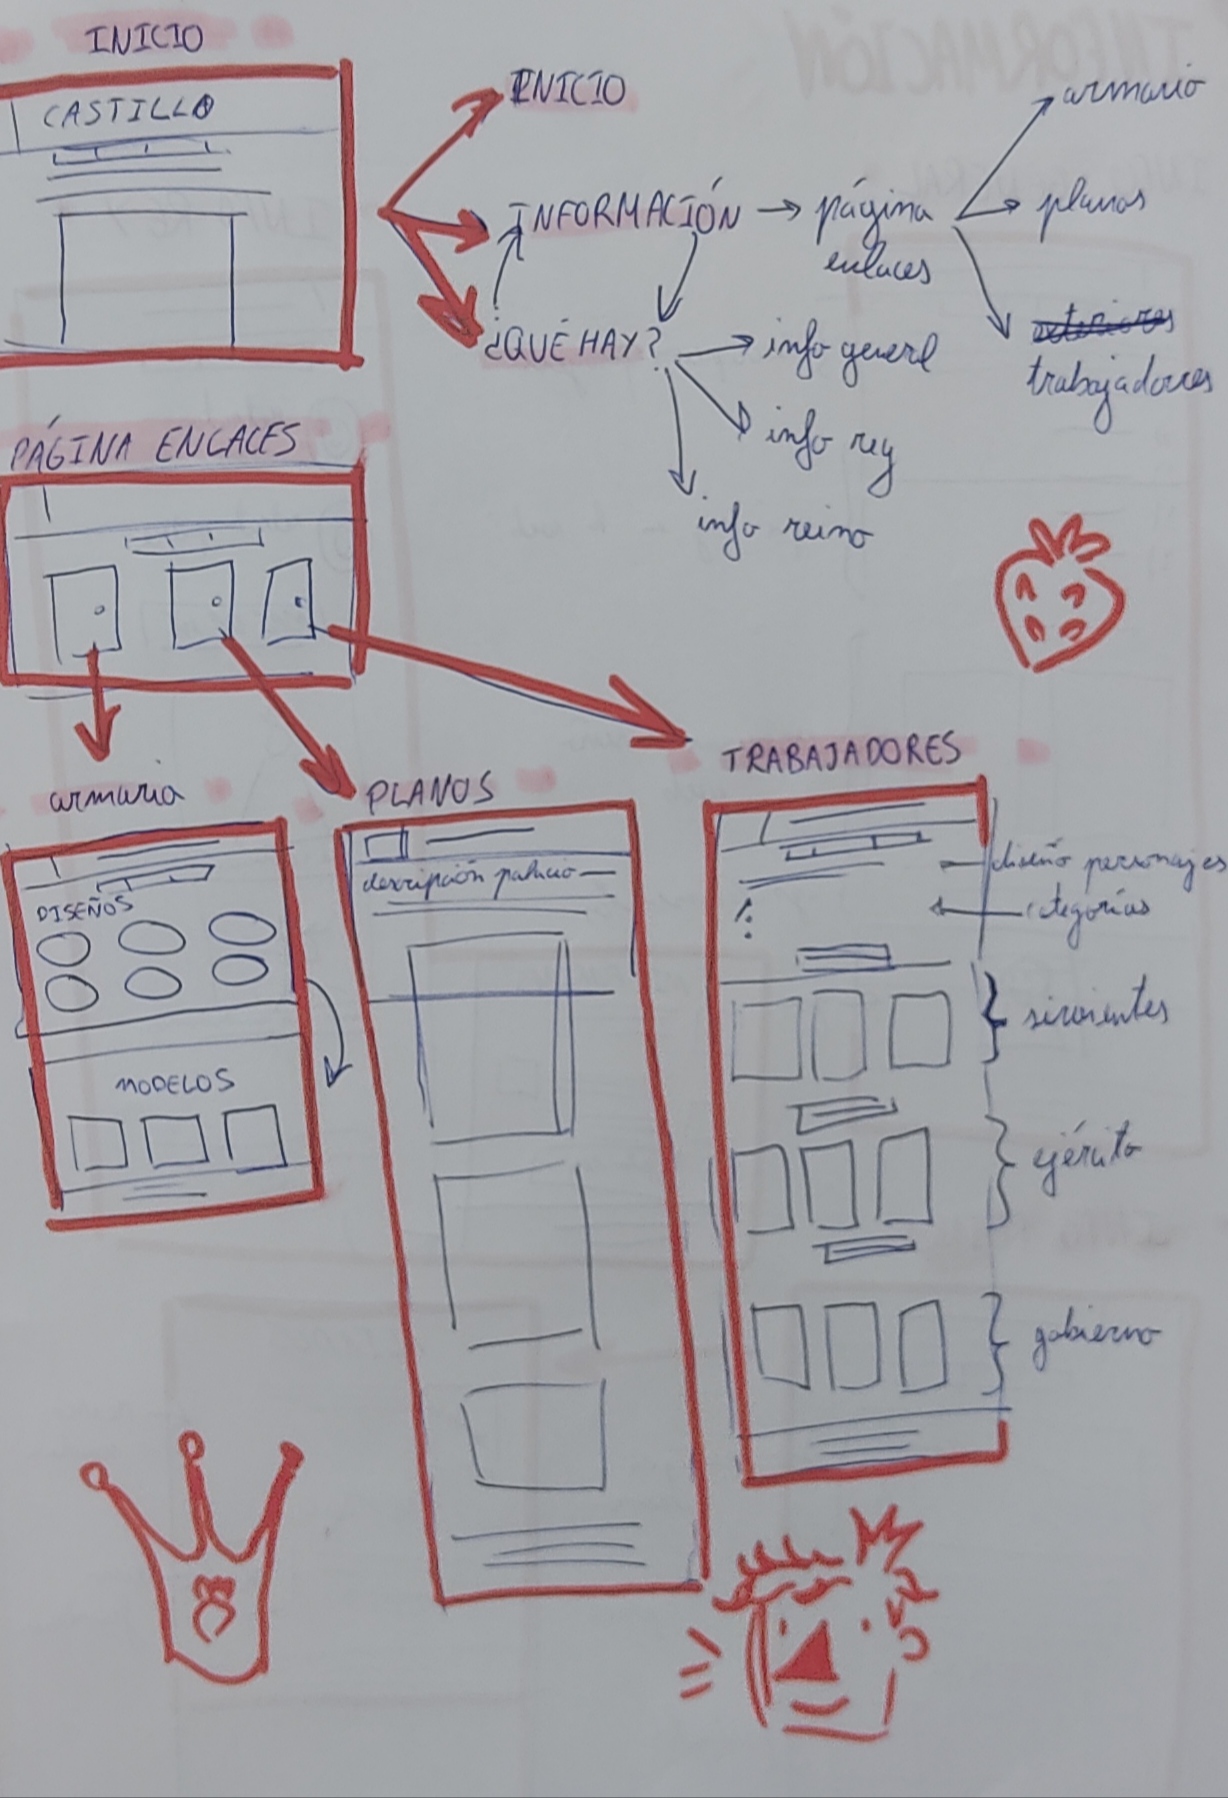 INICIO
CASTILLO
INICIO
INFORMACIÓN
página
enlaces
armario
planos
exteriores
trabajadores
¿QUÉ HAY?
info generl
info rey
info reino
PÁGINA ENLACES
armario
DISEÑOS
MODELOS
PLANOS
descripción palacio
TRABAJADORES
diseño personajes
categorías
sirvientes
ejército
gobierno